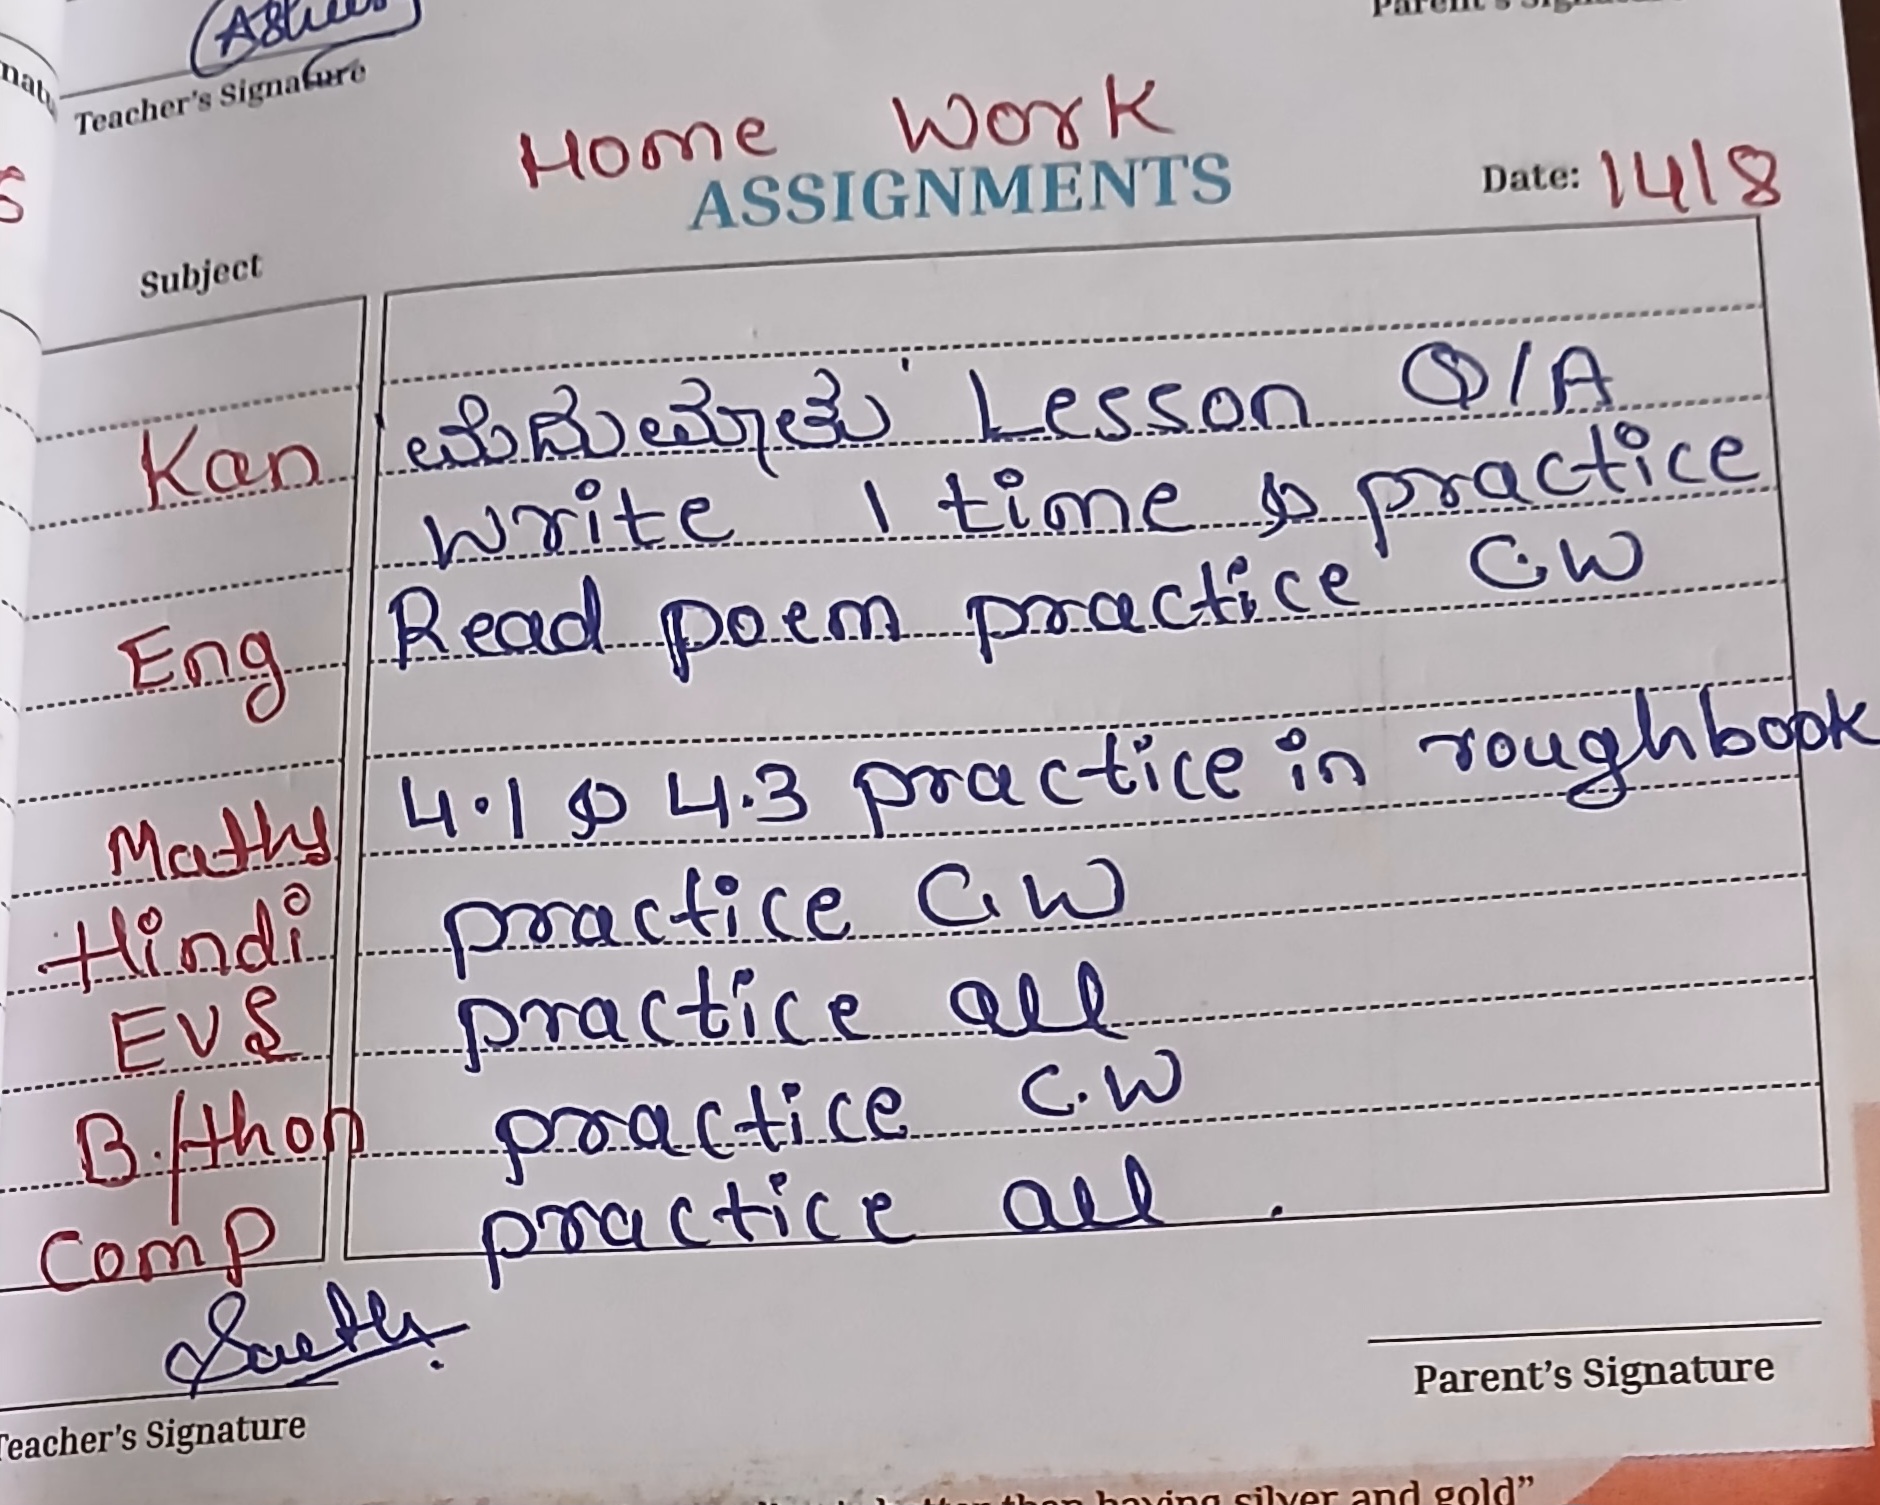 Teacher's Signature
Home Work
ASSIGNMENTS
Date: 14/8
Subject
Kan 'ಮೆದುಮಾತು' Lesson Q/A
write 1 time & practice
Eng Read poem practice C.W
Maths 4.1 & 4.3 practice in roughbook
Hindi practice C.W
EVS practice all
B./thon practice C.W
Comp practice all.
Teacher's Signature
Parent's Signature
than having silver and gold”